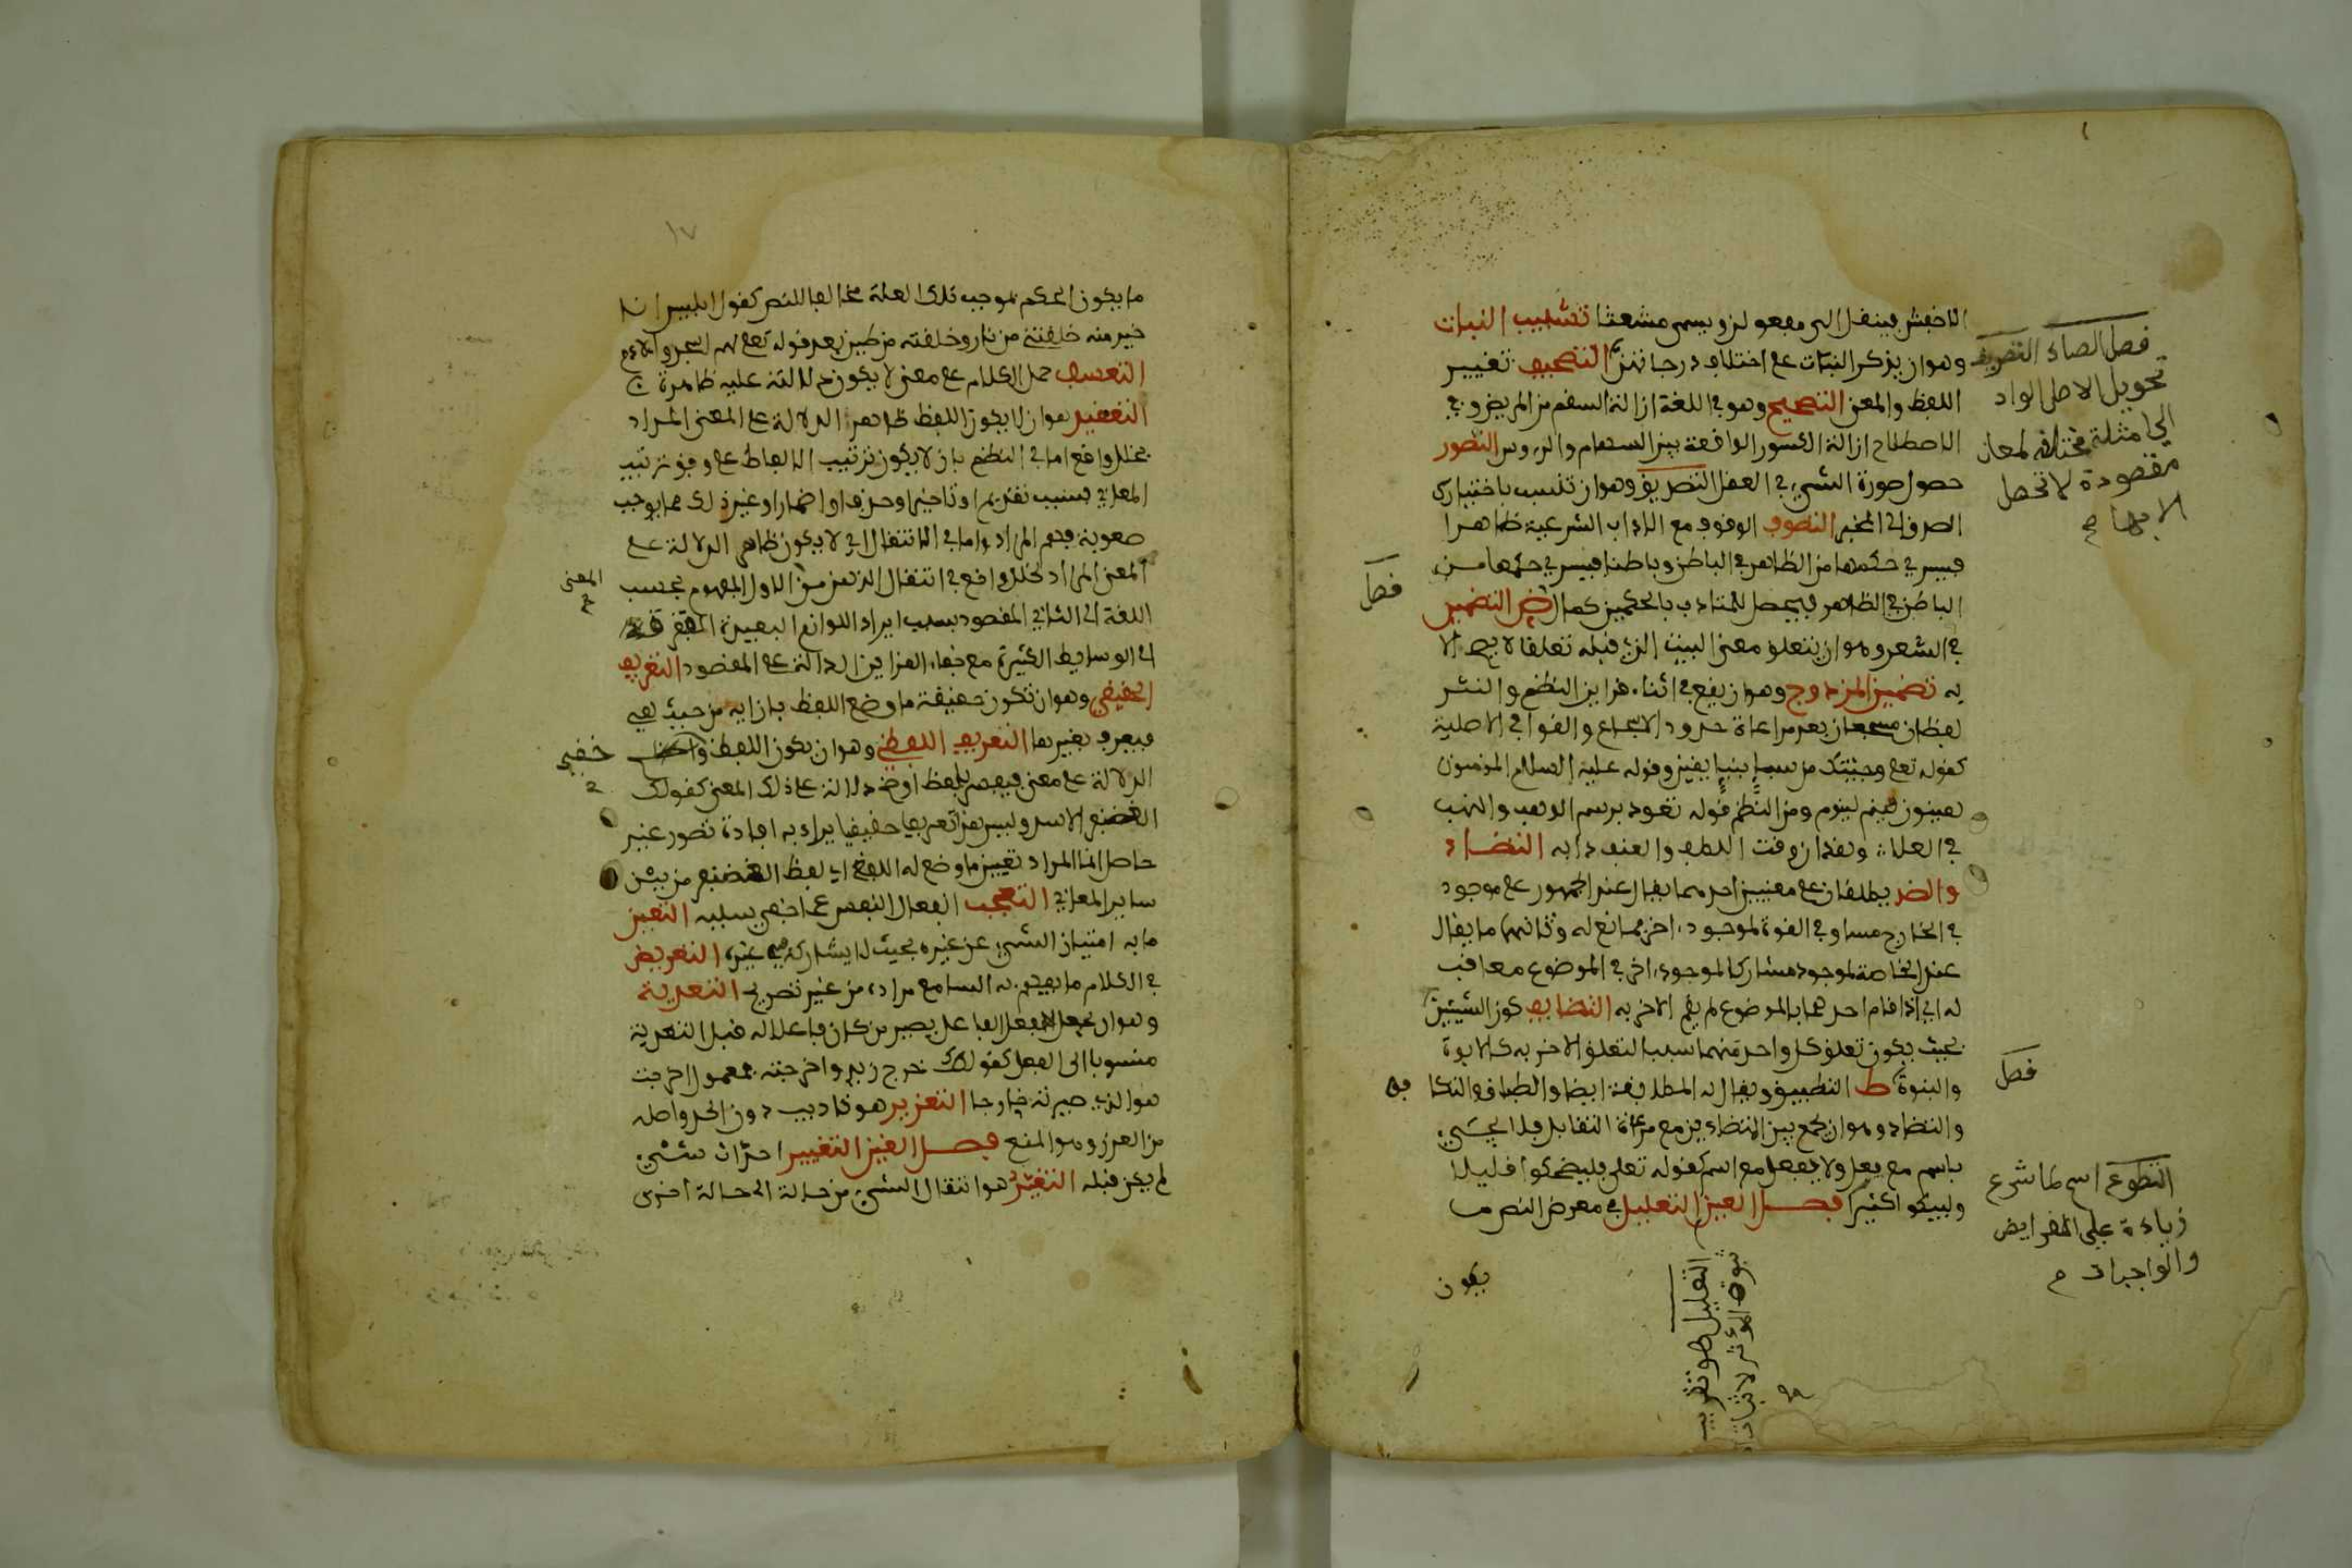 الاخفش فينقل الى مفعولن ويسمى مشعثا تشبيب البنات
وهو ان يذكر البنات على اختلاف درجاتهن التصحيف تغيير
اللفظ والمعنى التصحيح وهو في اللغة ازالة السقم من المريض وفي
الاصطلاح ازالة الكسور الواقعة بين السهام والرءوس التصور
حصول صورة الشيء في العقل التصديق وهو ان تنسب باختيارك
الصدق الى المخبر التصوف الوقوف مع الاداب الشرعية ظاهرا
فيسرى حكمها من الظاهر في الباطن وباطنا فيسرى حكمها من
الباطن في الظاهر فيحصل للمتادب بالحكمين كمال التضمين
في الشعر وهو ان يتعلق معنى البيت الذي قبله تعلقا لا يصح الا
به تضمين المزدوج وهو ان يقع في اثناء قراين النظم والنثر
لفظان مسجعان بعد مراعاة حدود الاسجاع والقوافي الاصلية
كقوله تعلى وجئتك من سبإ بنبإ يقين وقوله عليه السلام المؤمنون
هينون لينون ومن النظم قوله تعود برسم الوهب والنهب
في العلا وهذان وقت اللطف والعنف دابه التضاد
والضد يطلقان على معنيين احدهما يقال عند الجمهور على موجود
في الخارج مساو في القوة لموجود اخر ممانع له وثانيهما ما يقال
عند الخاصة لموجود مشارك لموجود اخر في الموضوع معاقب
له اي اذا قام احدهما بالموضوع لم يقم الاخر به التضايف كون الشيئين
بحيث يكون تعلق كل واحد منهما سببا لتعلق الاخر به كالابوة
والبنوة ط التطبيق ويقال له المطابقة ايضا والطباق والتكا فو
والتضاد وهو ان يجمع بين المتضادين مع مراعاة التقابل فلا يجيء
باسم مع فعل ولا بفعل مع اسم كقوله تعلى فليضحكوا قليلا
وليبكوا كثيرا فصل العين التعليل في معرض النص ما
يكون
فصل الصاد التصريف
تحويل الاصل الواحد
الى امثلة مختلفة لمعان
مقصودة لا تحصل
الا بها
فصل
فصل
التطوع اسم لما شرع
زيادة على الفرايض
والواجبات
التعليل هو تقرير
ثبوت المؤثر لاثبات
١٧
ما يكون الحكم بموجب تلك العلة مخالفا للنص كقول ابليس انا
خير منه خلقتني من نار وخلقته من طين بعد قوله تعلى لهم اسجدوا لادم
التعسف حمل الكلام على معنى لا يكون دلالته عليه ظاهرة
التعقيد هو ان لا يكون اللفظ ظاهر الدلالة على المعنى المراد
لخلل واقع اما في النظم بان لا يكون ترتيب الالفاظ على وفق ترتيب
المعاني بسبب تقديم او تاخير او حذف او اضمار او غير ذلك مما يوجب
صعوبة فهم المراد واما في الانتقال اي لا يكون ظاهر الدلالة على
المعنى المراد لخلل واقع في انتقال الذهن من الاول المفهوم بحسب
المعنى
اللغة الى الثاني المقصود بسبب ايراد اللوازم البعيدة المفتقرة
الى الوسايط الكثيرة مع خفاء القراين الدالة على المقصود التعريف
الحقيقي وهو ان تكون حقيقة ما وضع اللفظ بازايه من حيث هي
فيعرف بغيرها التعريف اللفظي وهو ان يكون اللفظ واضح
خفي
الدلالة على معنى فيفسر بلفظ اوضح دلالة على ذلك المعنى كقولك
الغضنفر الاسد وليس هذا تعريفا حقيقيا يراد به افادة تصور غير
حاصل انما المراد تعيين ما وضع له اللفظ اي لفظ الغضنفر من بين
ساير المعاني التعجب انفعال النفس عما خفي سببه التعين
ما به امتياز الشيء عن غيره بحيث لا يشاركه فيه غيره التعريض
في الكلام ما يفهم به السامع مراده من غير تصريح التعدية
وهو ان تجعل الفعل لفاعل يصير من كان فاعلا له قبل التعدية
منسوبا الى الفعل كقولك خرج زيد واخرجته فمفعول اخرجت
هو الذي صيرته خارجا التعزير هو تاديب دون الحد واصله
من العزر وهو المنع فصل الغين التغيير احداث شيء
لم يكن قبله التغير هو انتقال الشيء من حالة الى حالة اخرى